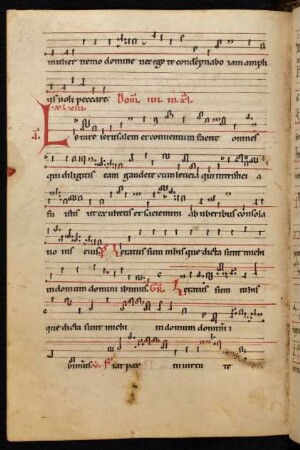 mulier nemo domine nec ego te condẽpnabo iam ampli
us noli peccare. Dom̃. iiii. in xl.
Letare ierusalem et conuentum facite omnes
qui diligitis eam gaudete cum leticia qui in tristici
a fu istis ut exultetis et saciemini ab uberibus consola
tio nis eius. Letatus sum in his que dicta sunt michi
in domum domini ibimus. Gr. Letatus sum in his
que dicta sunt michi in domum domini
ibimus. V. Fiat pax in uirtu te